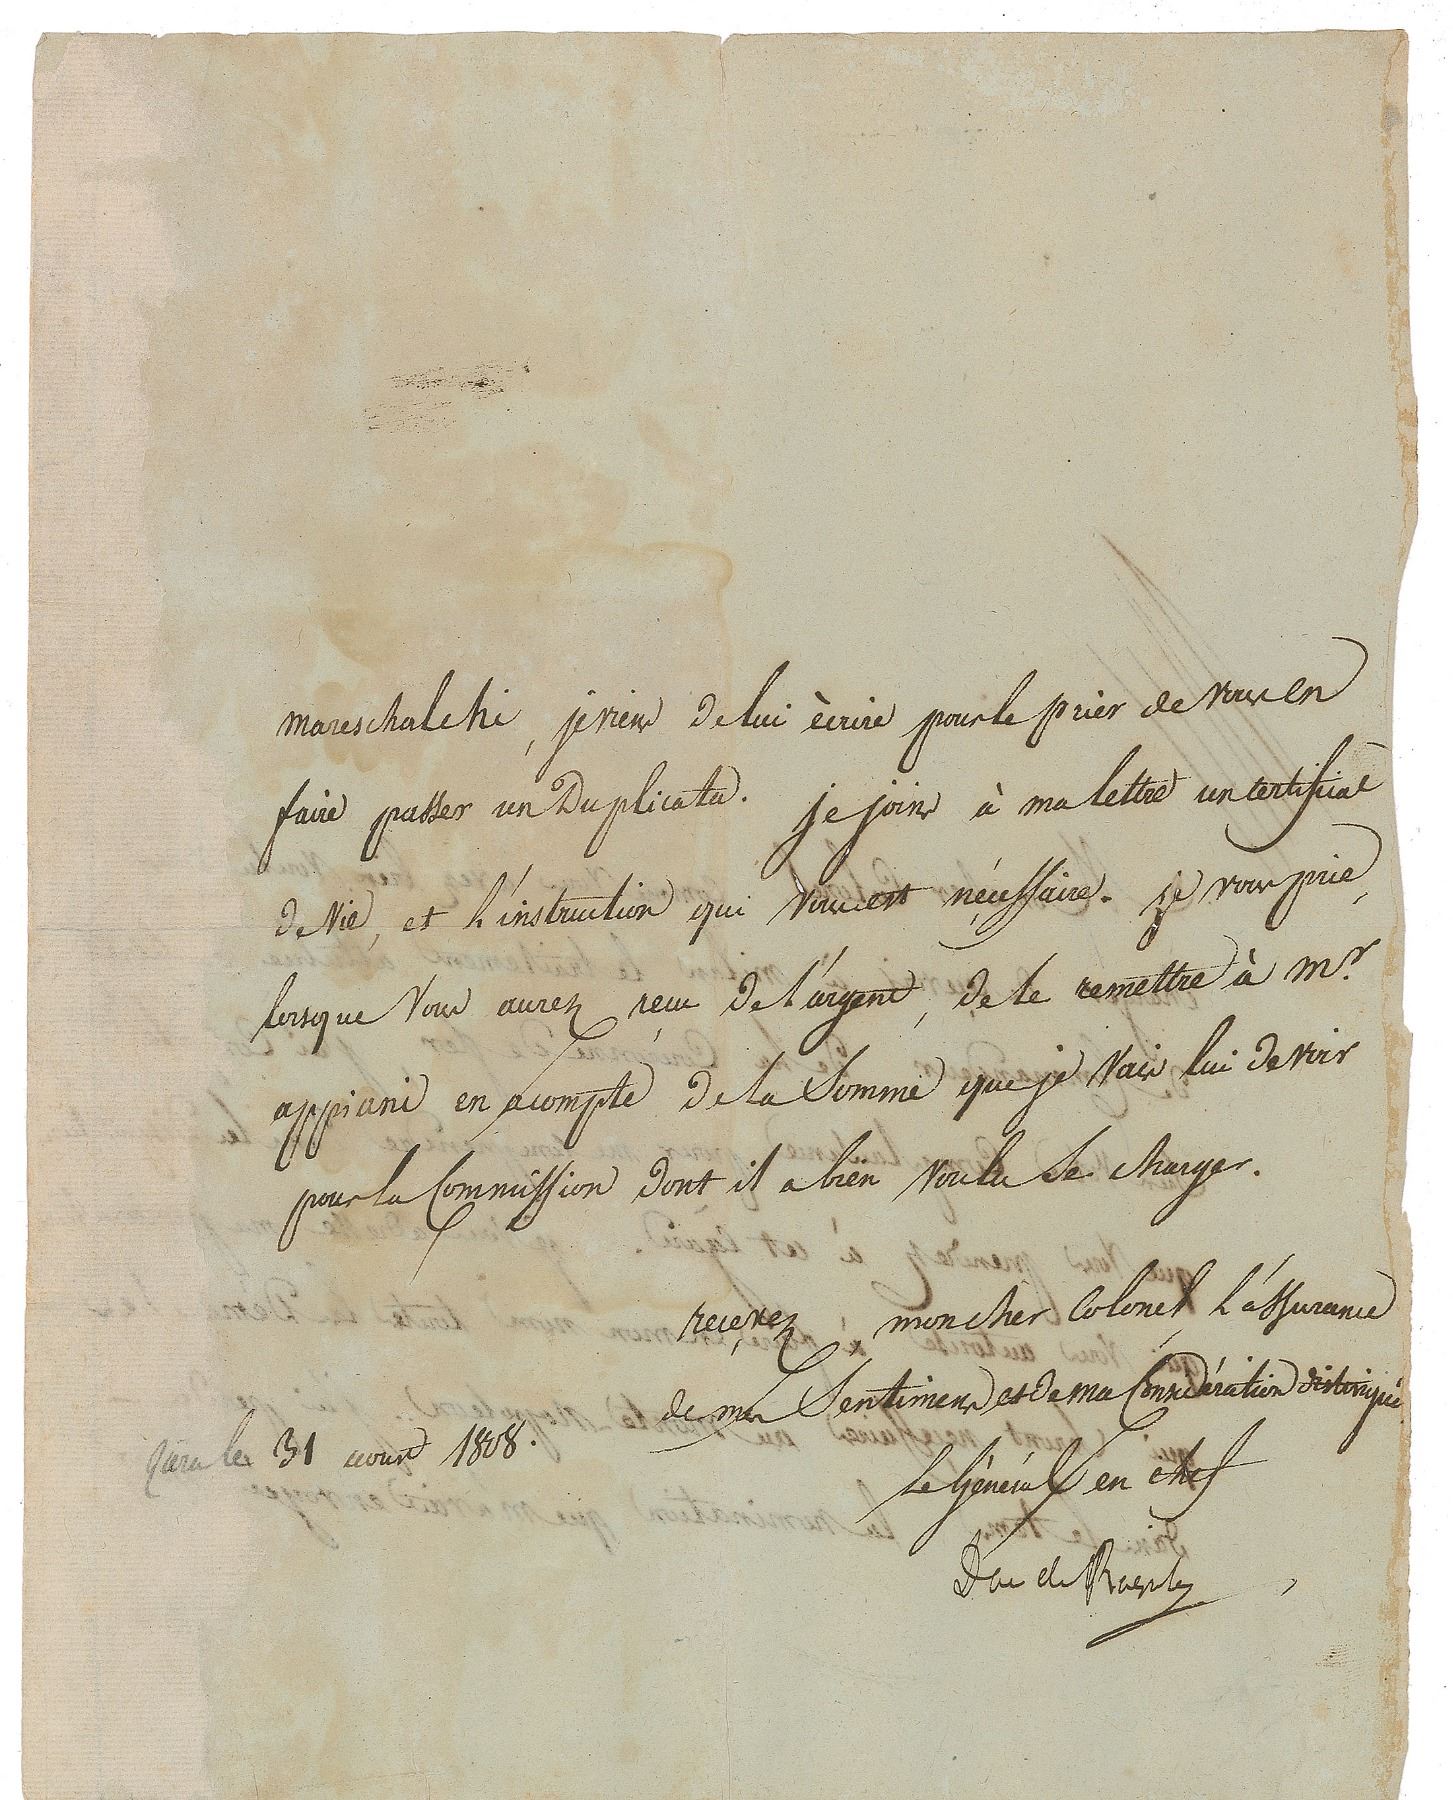 mareschalchi, je viens de lui ècrire pour le prier de vous en
faire passer un Duplicata. je joins à ma lettre un certificat
de vie, et l'instruction qui vous est nécessaire. je vous prie,
lorsque vous aurez reçu de l'argent, de le remettre à Mr.
appiani en acompte de la somme que je vais lui devoir
pour la Commission dont il a bien voulu se charger.
recevez, mon cher Colonel, l'assurance
de mes Sentimens et de ma Considération distingué
Zara le 31 aoust 1808.
Le Général en chef
Duc de Raguse